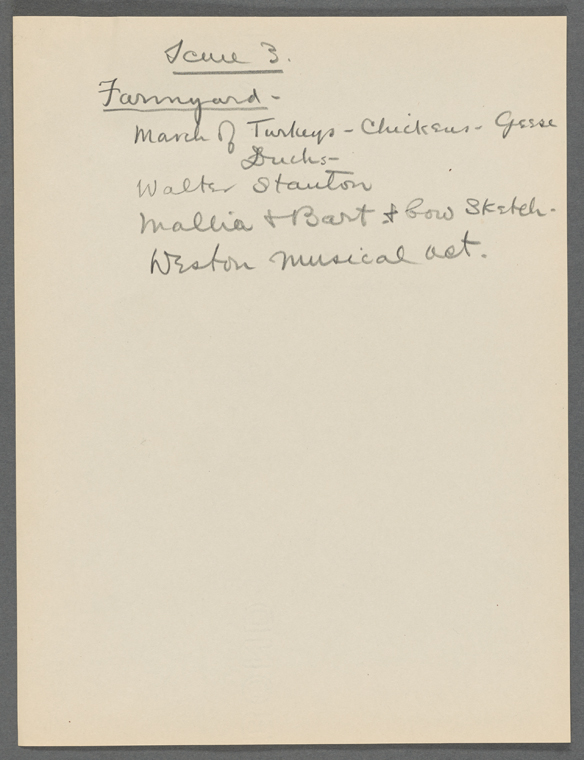 Scene 3.
Farmyard -
March of Turkeys - Chickens - Geese
Ducks -
Walter Stanton
Mallia & Bart & Cow Sketch -
Weston Musical act.